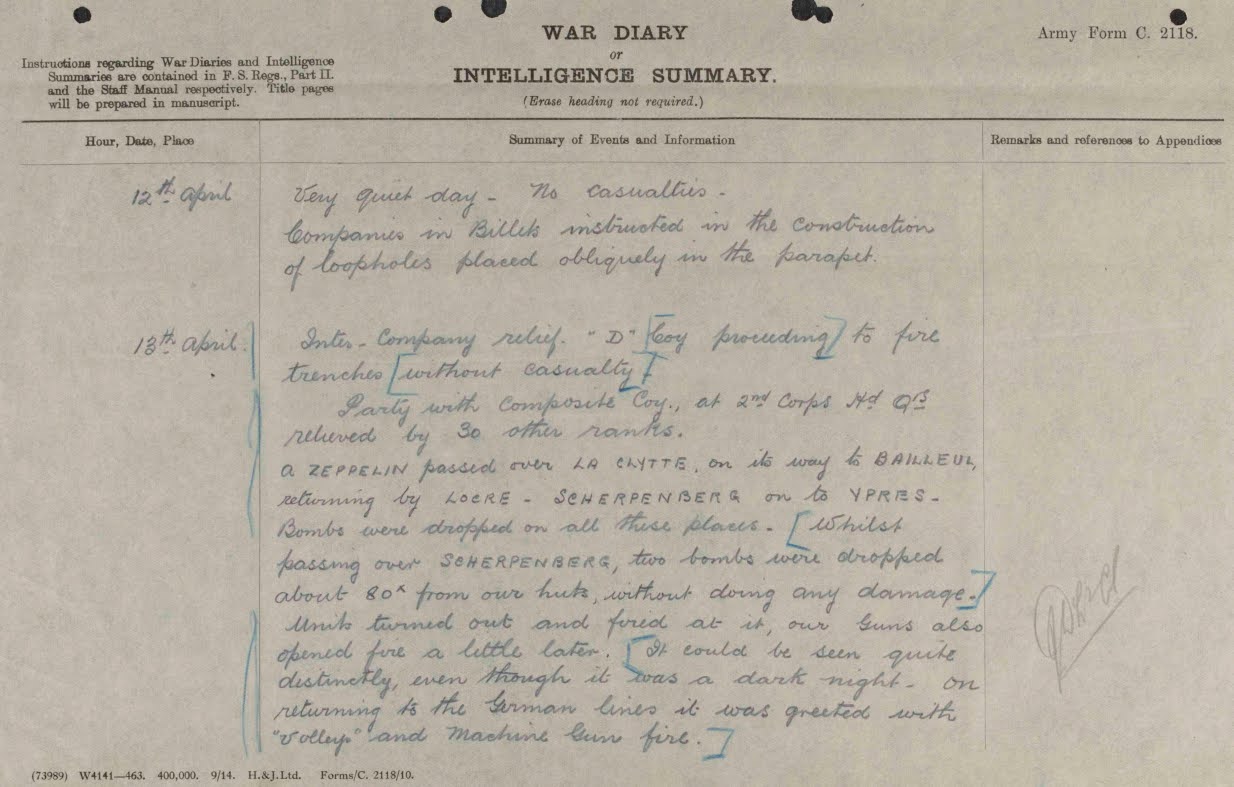 WAR DIARY
or
INTELLIGENCE SUMMARY.
(Erase heading not required.)
Army Form C. 2118.
Instructions regarding War Diaries and Intelligence
Summaries are contained in F. S. Regs., Part II.
and the Staff Manual respectively. Title pages
will be prepared in manuscript.
Hour, Date, Place
Summary of Events and Information
Remarks and references to Appendices
12th April
Very quiet day - No casualties -
Companies in Billets instructed in the construction
of loopholes placed obliquely in the parapet.
13th April.
Inter-Company relief. "D" [Coy proceeding] to fire
trenches [without casualty]
Party with Composite Coy., at 2nd Corps Hd Qrs
relieved by 30 other ranks.
A ZEPPELIN passed over LA CLYTTE, on its way to BAILLEUL,
returning by LOCRE - SCHERPENBERG on to YPRES -
Bombs were dropped on all these places - [Whilst
passing over SCHERPENBERG, two bombs were dropped
about 80x from our huts, without doing any damage.]
Units turned out and fired at it, our Guns also
opened fire a little later. [It could be seen quite
distinctly, even though it was a dark night - On
returning to the German lines it was greeted with
"Volleys" and Machine Gun fire.]
(73989) W4141—463. 400,000. 9/14. H.&J.Ltd. Forms/C. 2118/10.